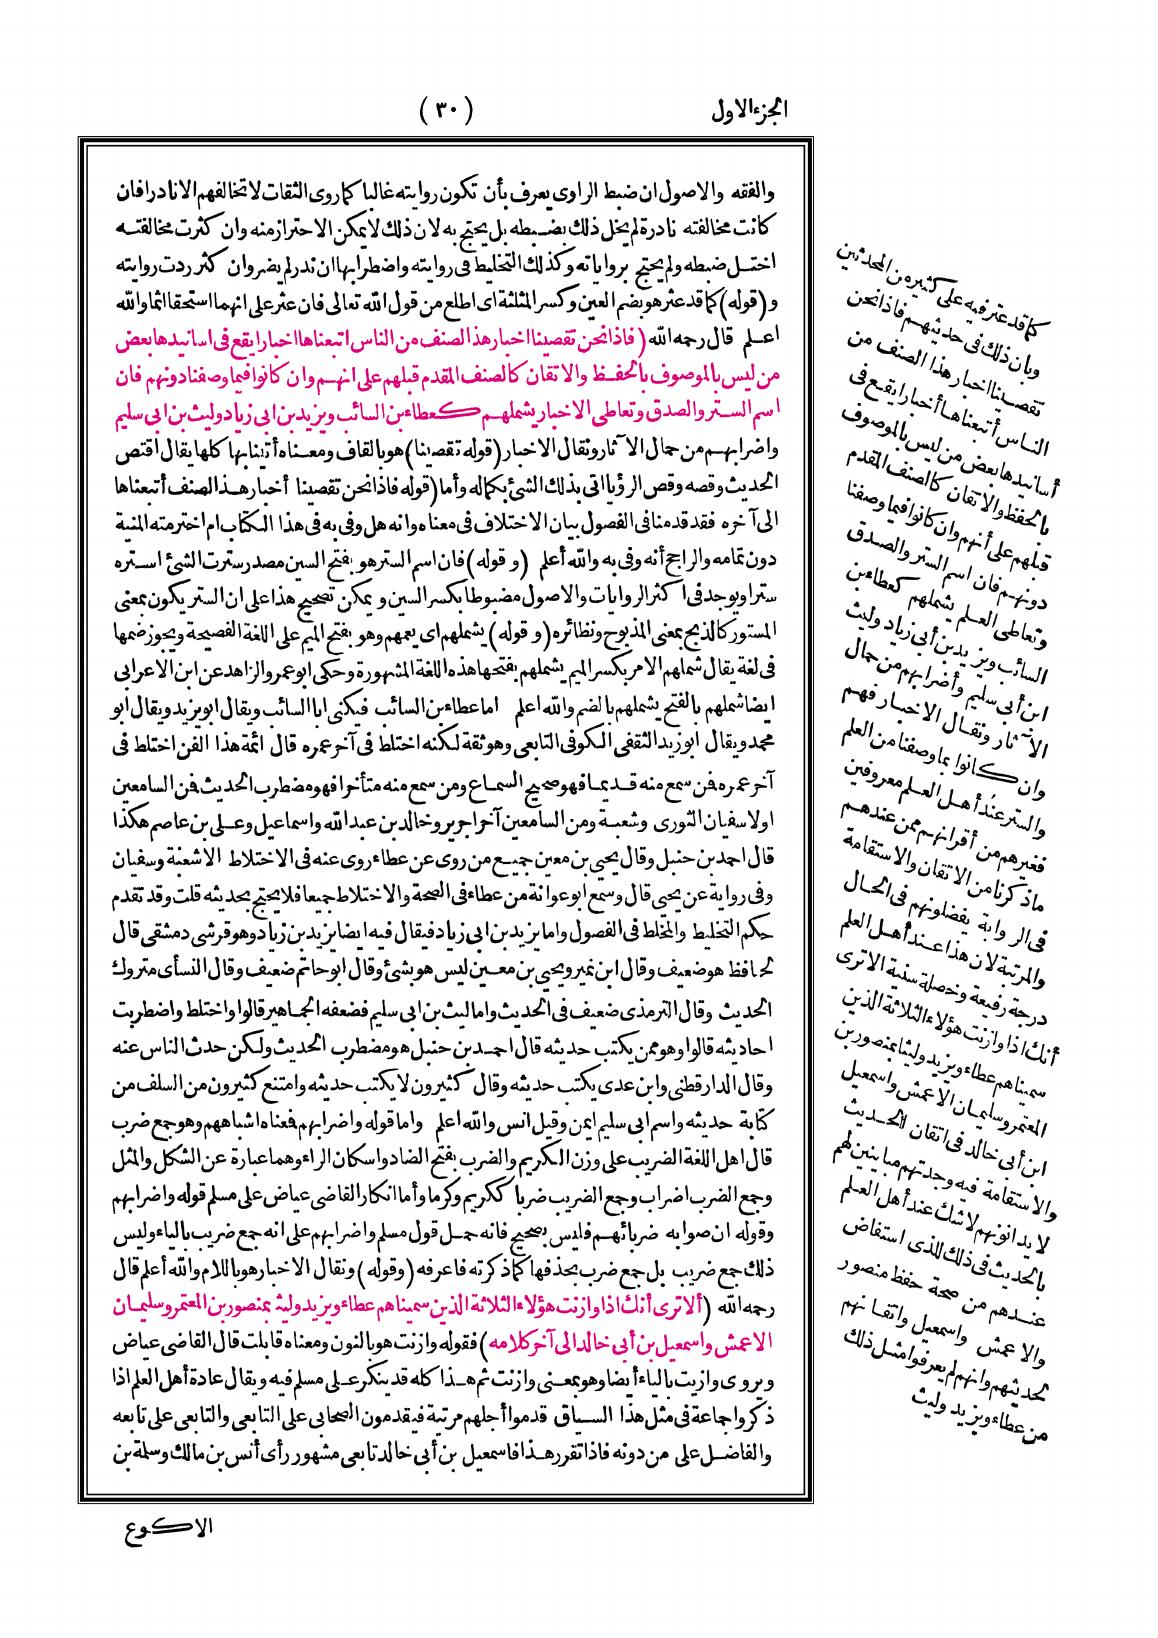 الجزء الاول
(٣٠)
والفقه والاصول ان ضبط الراوى يعرف بأن تكون روايته غالبا كما روى الثقات لا تخالفهم الا نادرا فان
كانت مخالفته نادرة لم يخل ذلك بضبطه بل يحتج به لان ذلك لا يمكن الاحتراز منه وان كثرت مخالفته
اختل ضبطه ولم يحتج برواياته وكذلك التخليط فى روايته واضطرابها ان ندر لم يضر وان كثر ردت روايته
و (قوله) كما قد عثر هو بضم العين وكسر المثلثة اى اطلع من قول الله تعالى فان عثر على انهما استحقا اثما والله
اعلم قال رحمه الله (فاذا نحن تقصينا اخبار هذا الصنف من الناس اتبعناها اخبارا يقع فى اسانيدها بعض
من ليس بالموصوف بالحفظ والاتقان كالصنف المقدم قبلهم على انهم وان كانوا فيما وصفنا دونهم فان
اسم الستر والصدق وتعاطى الاخبار يشملهم كعطاء بن السائب ويزيد بن ابى زياد وليث بن ابى سليم
واضرابهم من حمال الآثار ونقال الاخبار (قوله تقصينا) هو بالقاف ومعناه أتينا بها كلها يقال اقتص
الحديث وقصه وقص الرؤيا اتى بذلك الشئ بكماله وأما (قوله فاذا نحن تقصينا أخبار هذا الصنف أتبعناها
الى آخره فقد قدمنا فى الفصول بيان الاختلاف فى معناه وانه هل وفى به فى هذا الكتاب ام اخترمته المنية
دون تمامه والراجح أنه وفى به والله أعلم (وقوله) فان اسم الستر هو بفتح السين مصدر سترت الشئ استره
سترا ويوجد فى اكثر الروايات والاصول مضبوطا بكسر السين ويمكن تصحيح هذا على ان الستر يكون بمعنى
المستور كالذبح بمعنى المذبوح ونظائره (وقوله) يشملهم اى يعمهم وهو بفتح الميم على اللغة الفصيحة ويجوز ضمها
فى لغة يقال شملهم الامر بكسر الميم يشملهم بفتحها هذه اللغة المشهورة وحكى ابو عمر والزاهد عن ابن الاعرابى
ايضا شملهم بالفتح يشملهم بالضم والله اعلم اما عطاء بن السائب فيكنى ابا السائب ويقال ابو يزيد ويقال ابو
محمد ويقال ابو زيد الثقفى الكوفى التابعى وهو ثقة لكنه اختلط فى آخر عمره قال ائمة هذا الفن اختلط فى
آخر عمره فمن سمع منه قديما فهو صحيح السماع ومن سمع منه متأخرا فهو مضطرب الحديث فمن السامعين
اولا سفيان الثورى وشعبة ومن السامعين آخرا جرير وخالد بن عبد الله واسماعيل وعلى بن عاصم هكذا
قال احمد بن حنبل وقال يحيى بن معين جميع من روى عن عطاء روى عنه فى الاختلاط الا شعبة وسفيان
وفى رواية عن يحيى قال وسمع ابو عوانة من عطاء فى الصحة والاختلاط جميعا فلا يحتج بحديثه قلت وقد تقدم
حكم التخليط والمخلط فى الفصول واما يزيد بن ابى زياد فيقال فيه ايضا يزيد بن زياد وهو قرشى دمشقى قال
لحافظ هو ضعيف وقال ابن نمير ويحيى بن معين ليس هو بشئ وقال ابو حاتم ضعيف وقال النسأى متروك
الحديث وقال الترمذى ضعيف فى الحديث واما ليث بن ابى سليم فضعفه الجماهير قالوا واختلط واضطربت
احاديثه قالوا وهو ممن يكتب حديثه قال احمد بن حنبل هو مضطرب الحديث ولكن حدث الناس عنه
وقال الدارقطنى وابن عدى يكتب حديثه وقال كثيرون لا يكتب حديثه وامتنع كثيرون من السلف من
كتابة حديثه واسم ابى سليم ايمن وقيل انس والله اعلم واما قوله واضرابهم فمعناه اشباههم وهو جمع ضرب
قال اهل اللغة الضريب على وزن الكريم والضرب بفتح الضاد واسكان الراء وهما عبارة عن الشكل والمثل
وجمع الضرب اضراب وجمع الضريب ضربا ككريم وكرما وأما انكار القاضى عياض على مسلم قوله واضرابهم
وقوله ان صوابه ضربائهم فليس بصحيح فانه حمل قول مسلم واضرابهم على انه جمع ضريب بالياء وليس
ذلك جمع ضريب بل جمع ضرب بحذفها كما ذكرته فاعرفه (وقوله) ونقال الاخبار هو باللام والله أعلم قال
رحمه الله (ألا ترى أنك اذا وازنت هؤلاء الثلاثة الذين سميناهم عطاء ويزيد وليث بمنصور بن المعتمر وسليمان
الاعمش واسمعيل بن أبى خالد الى آخر كلامه) فقوله وازنت هو بالنون ومعناه قابلت قال القاضى عياض
ويروى وازيت بالياء أيضا وهو بمعنى وازنت ثم هذا كله قد ينكر على مسلم فيه ويقال عادة أهل العلم اذا
ذكروا جماعة فى مثل هذا السياق قدموا أجلهم مرتبة فيقدمون الصحابى على التابعى والتابعى على تابعه
والفاضل على من دونه فاذا تقرر هذا فاسمعيل بن أبى خالد تابعى مشهور رأى أنس بن مالك وسلمة بن
الاكوع
كما قد عثر فيه على كثير من المحدثين
وبان ذلك فى حديثهم فاذا نحن
تقصينا اخبار هذا الصنف من
الناس أتبعناها أخبارا يقع فى
أسانيدها بعض من ليس بالموصوف
بالحفظ والاتقان كالصنف المقدم
قبلهم على أنهم وان كانوا فيما وصفنا
دونهم فان اسم الستر والصدق
وتعاطى العلم يشملهم كعطاء بن
السائب ويزيد بن أبى زياد وليث
ابن أبى سليم وأضرابهم من حمال
الآثار ونقال الاخبار فهم
وان كانوا بما وصفنا من العلم
والستر عند أهل العلم معروفين
فغيرهم من أقرانهم ممن عندهم
ما ذكرنا من الاتقان والاستقامة
فى الرواية يفضلونهم فى الحال
والمرتبة لان هذا عند أهل العلم
درجة رفيعة وخصلة سنية الا ترى
أنك اذا وازنت هؤلاء الثلاثة الذين
سميناهم عطاء ويزيد وليثا بمنصور بن
المعتمر وسليمان الاعمش واسمعيل
ابن أبى خالد فى اتقان الحديث
والاستقامة فيه وجدتهم مباينين لهم
لا يدانونهم لا شك عند أهل العلم
بالحديث فى ذلك للذى استفاض
عندهم من صحة حفظ منصور
والاعمش واسمعيل واتقانهم
لحديثهم وانهم لم يعرفوا مثل ذلك
من عطاء ويزيد وليث